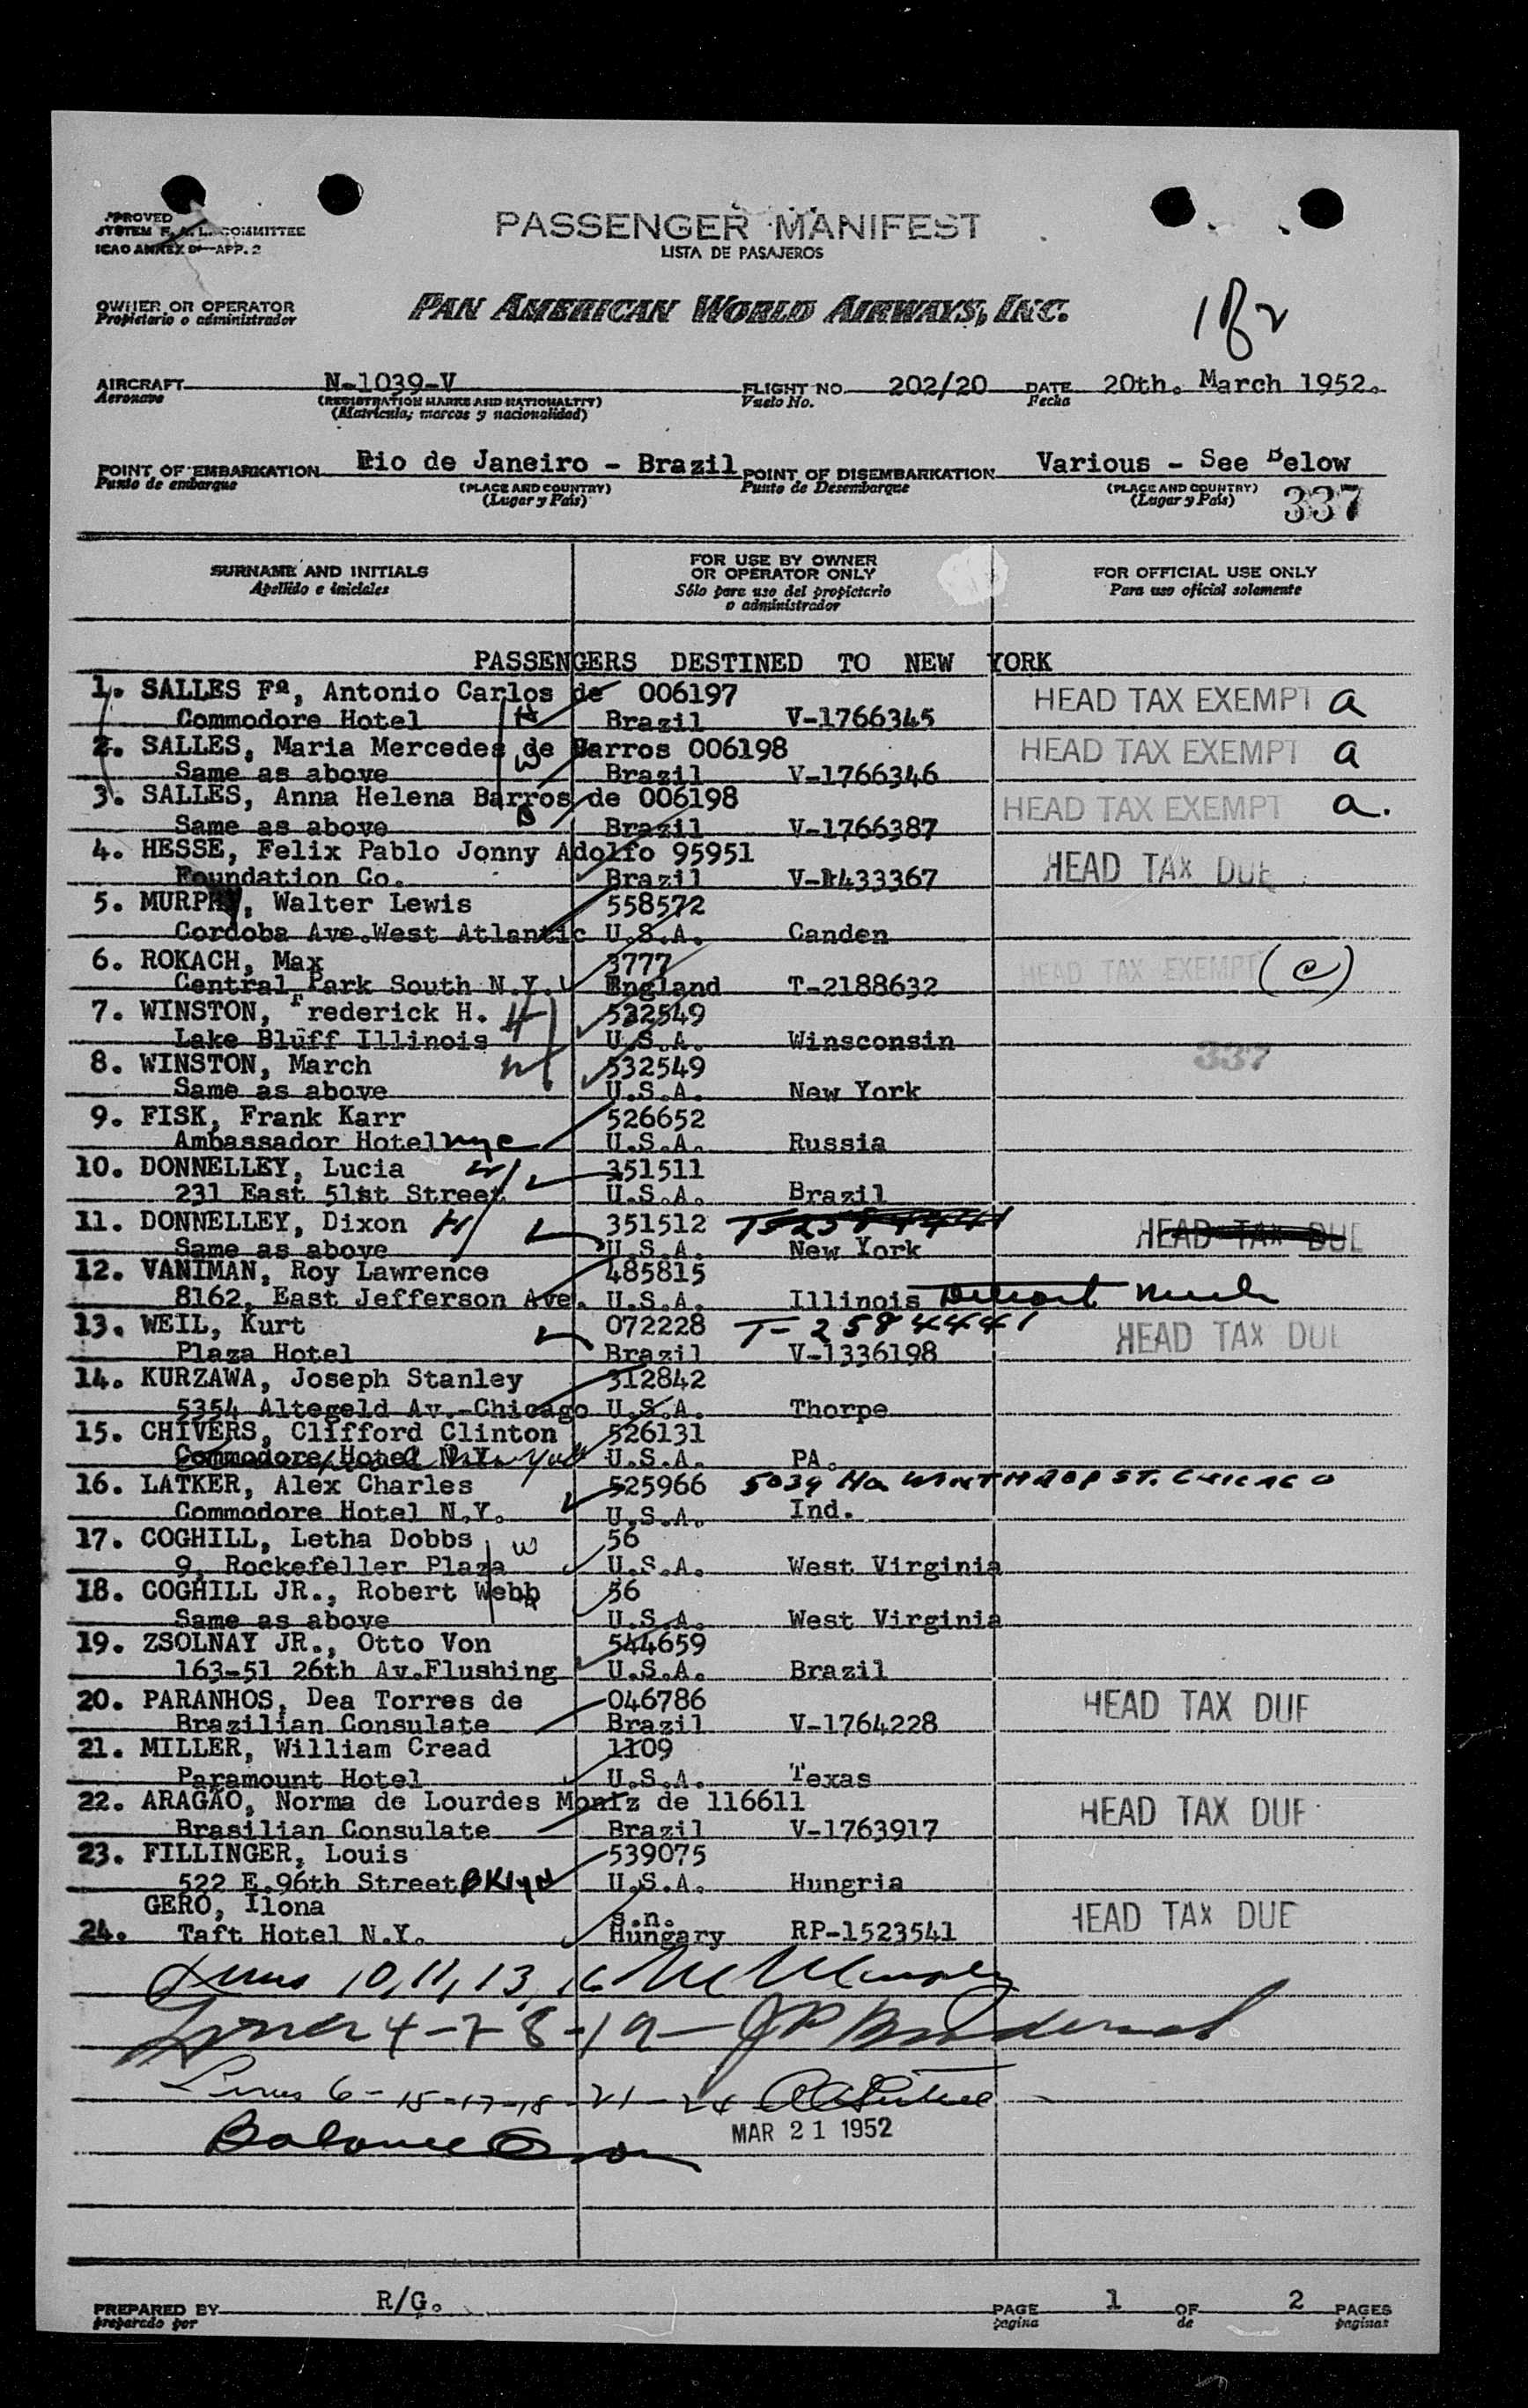 APPROVED
SYSTEM F. A. L. COMMITTEE
ICAO ANNEX 9—APP. 2
PASSENGER MANIFEST
LISTA DE PASAJEROS
OWNER OR OPERATOR
Propietario o administrador
PAN AMERICAN WORLD AIRWAYS, INC.
AIRCRAFT N-1039-V FLIGHT NO. 202/20 DATE 20th. March 1952.
Aeronave (REGISTRATION MARKS AND NATIONALITY) Vuelo No. Fecha
(Matrícula; marcas y nacionalidad)
POINT OF EMBARKATION Rio de Janeiro - Brazil POINT OF DISEMBARKATION Various - See Below
Punto de embarque (PLACE AND COUNTRY) Punto de Desembarque (PLACE AND COUNTRY)
(Lugar y País) (Lugar y País) 337
SURNAME AND INITIALS FOR USE BY OWNER OR OPERATOR ONLY FOR OFFICIAL USE ONLY
Apellido e iniciales Sólo para uso del propietario o administrador Para uso oficial solamente
PASSENGERS DESTINED TO NEW YORK
1. SALLES Fª, Antonio Carlos de 006197 HEAD TAX EXEMPT a
Commodore Hotel H Brazil V-1766345
2. SALLES, Maria Mercedes de Barros 006198 HEAD TAX EXEMPT a
Same as above W Brazil V-1766346
3. SALLES, Anna Helena Barros de 006198 HEAD TAX EXEMPT a.
Same as above Brazil V-1766387
4. HESSE, Felix Pablo Jonny Adolfo 95951 HEAD TAX DUE
Foundation Co. Brazil V-1433367
5. MURPHY, Walter Lewis 558572
Cordoba Ave.West Atlantic U.S.A. Canden
6. ROKACH, Max 3777 HEAD TAX EXEMPT (c)
Central Park South N.Y. England T-2188632
7. WINSTON, Frederick H. H 532549
Lake Bluff Illinois U.S.A. Winsconsin
337
8. WINSTON, March W 532549
Same as above U.S.A. New York
9. FISK, Frank Karr 526652
Ambassador Hotel nyc U.S.A. Russia
10. DONNELLEY, Lucia W 351511
231 East 51st Street U.S.A. Brazil
11. DONNELLEY, Dixon H 351512 T-2584441 HEAD TAX DUE
Same as above U.S.A. New York
12. VANIMAN, Roy Lawrence 485815
8162, East Jefferson Ave. U.S.A. Illinois Detroit Mich
13. WEIL, Kurt 072228 T-2584441 HEAD TAX DUE
Plaza Hotel Brazil V-1336198
14. KURZAWA, Joseph Stanley 312842
5354 Altegeld Av.-Chicago U.S.A. Thorpe
15. CHIVERS, Clifford Clinton 526131
Commodore Hotel N.Y. U.S.A. PA.
16. LATKER, Alex Charles 525966 5039 No WINTHROP ST. CHICAGO
Commodore Hotel N.Y. U.S.A. Ind.
17. COGHILL, Letha Dobbs W 56
9, Rockefeller Plaza U.S.A. West Virginia
18. COGHILL JR., Robert Webb 56
Same as above U.S.A. West Virginia
19. ZSOLNAY JR., Otto Von 544659
163-51 26th Av.Flushing U.S.A. Brazil
20. PARANHOS, Dea Torres de 046786 HEAD TAX DUE
Brazilian Consulate Brazil V-1764228
21. MILLER, William Cread 1109
Paramount Hotel U.S.A. Texas
22. ARAGÃO, Norma de Lourdes Moniz de 116611 HEAD TAX DUE
Brasilian Consulate Brazil V-1763917
23. FILLINGER, Louis 539075
522 E.96th Street BKlyn U.S.A. Hungria
GERO, Ilona s.n. HEAD TAX DUE
24. Taft Hotel N.Y. Hungary RP-1523541
Lines 10, 11, 13, 16
Lines 4-7-8-19
Lines 6-15-17-18-21-24
Balance
MAR 21 1952
PREPARED BY R/G. PAGE 1 OF 2 PAGES
preparado por página de páginas